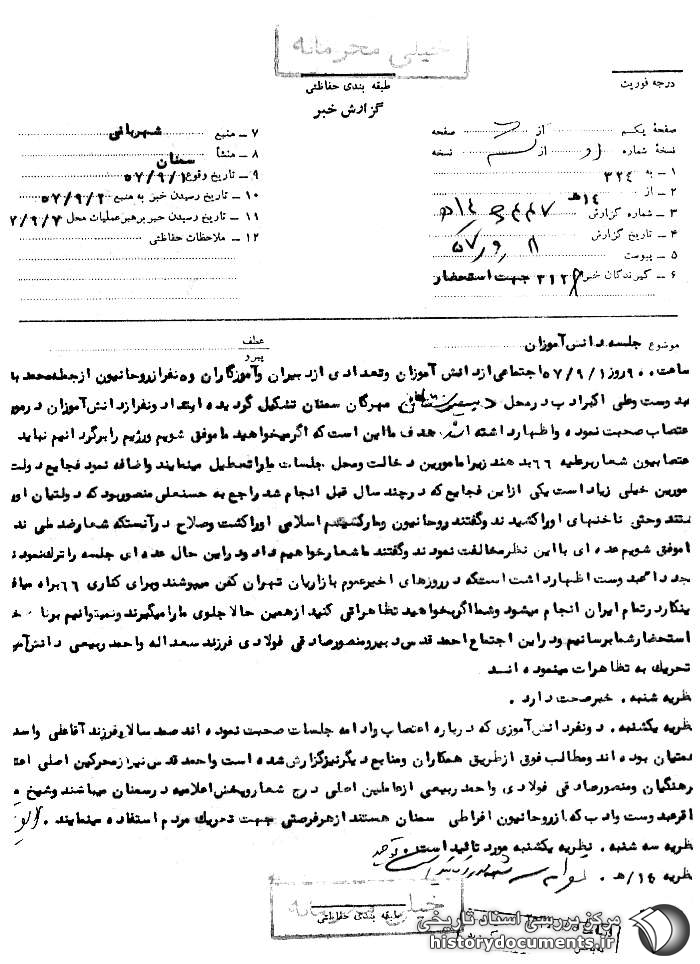 خیلی محرمانه
طبقه بندی حفاظتی
گزارش خبر
درجه فوریت
صفحه یکم از صفحه
نسخه شماره از نسخه
۱ ــ به ۳۲۴
۲ ــ از ۱۴ هـ
۳ ــ شماره گزارش
۴ ــ تاریخ گزارش
۵ ــ پیوست
۶ ــ گیرندگان خبر ۳۱۲ جهت استحضار
۷ ــ منبع شهربانی
۸ ــ منشأ سمنان
۹ ــ تاریخ وقوع ۵۷/۹/۱
۱۰ ــ تاریخ رسیدن خبر به منبع ۵۷/۹/۲
۱۱ ــ تاریخ رسیدن خبر برهبر عملیات محل ۲/۹/۷
۱۲ ــ ملاحظات حفاظتی
موضوع جلسه دانش آموزان
عطف
پیرو
ساعت ۹۰۰ روز ۵۷/۹/۱ اجتماعی از دانش آموزان و تعدادی از دبیران و آموزگاران و ۵ نفر از روحانیون از جمله محمد
ید وست وعلی اکبر ادب در محل مهرگان سمنان تشکیل گردیده ابتدا دو نفر از دانش آموزان در مور
عتصاب صحبت نموده و اظهار داشته اند هدف ما این است که اگر میخواهید ما موفق شویم و رژیم را برگردانیم نباید
عتصابیون شعار برعلیه ۶۶ بدهند زیرا مامورین دخالت و محل جلسات ما را تعطیل مینمایند و اضافه نمود فجایع دولت
مورین خیلی زیاد است یکی از این فجایع که در چند سال قبل انجام شد راجع به حسنعلی منصور بود که دولتیان اور
ستند و حتی ناخنهای او را کشیدند و گفتند روحانیون و مارکسیسم اسلامی او را کشت و صلاح در آنستکه شعار ضد ملی ند
اموفق شویم عده ای با این نظر مخالفت نمودند و گفتند ما شعار خواهیم داد و در این حال عده ای جلسه را ترک نمودند
جددا محمد دوست اظهار داشت استکه در روزهای اخیر عموم بازاریان تهران کفن میپوشند و برای کناری ۶۶ براه میاف
ینکار در تمام ایران انجام میشود و شما اگر بخواهید تظاهراتی کنید از همین حالا جلوی ما را میگیرند و نمیتوانیم برنا
استحضار شما برسانیم و در این اجتماع احمد قدس دبیر و منصور صادقی فولادی فرزند سعداله و احمد ربیعی دانش آمو
تحریک به تظاهرات مینموده اند
ظریه شنبه . خبر صحت دارد .
ظریه یکشنبه . دو نفر دانش آموزی که درباره اعتصاب و ادامه جلسات صحبت نموده اند صمد سالار فرزند آقاعلی واسد
متیان بوده اند و مطالب فوق از طریق همکاران و منابع دیگر نیز گزارش شده است و احمد قدس نیز از محرکین اصلی اعت
رهنگیان و منصور صادقی فولادی و احمد ربیعی از عاملین اصلی درج شعار و پخش اعلامیه در سمنان میباشند و شیخ
اقر مید وست و ادب که از روحانیون افراطی سمنان هستند از هر فرصتی جهت تحریک مردم استفاده مینمایند .
ظریه سه شنبه . نظریه یکشنبه مورد تائید است .
ظریه ۱۴/هـ .
خیلی محرمانه
طبقه بندی حفاظتی
مرکز بررسی اسناد تاریخی
historydocuments.ir